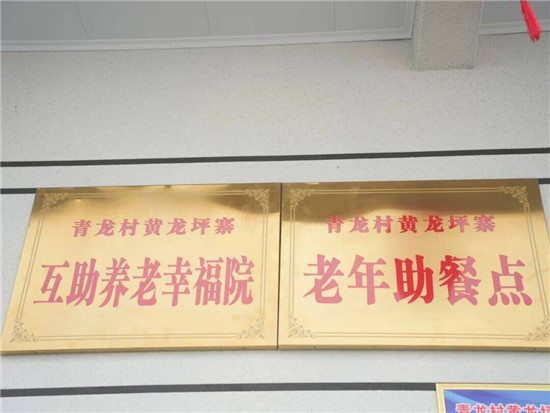 青龙村黄龙坪寨
互助养老幸福院
青龙村黄龙坪寨
老年助餐点
青龙村黄龙坪